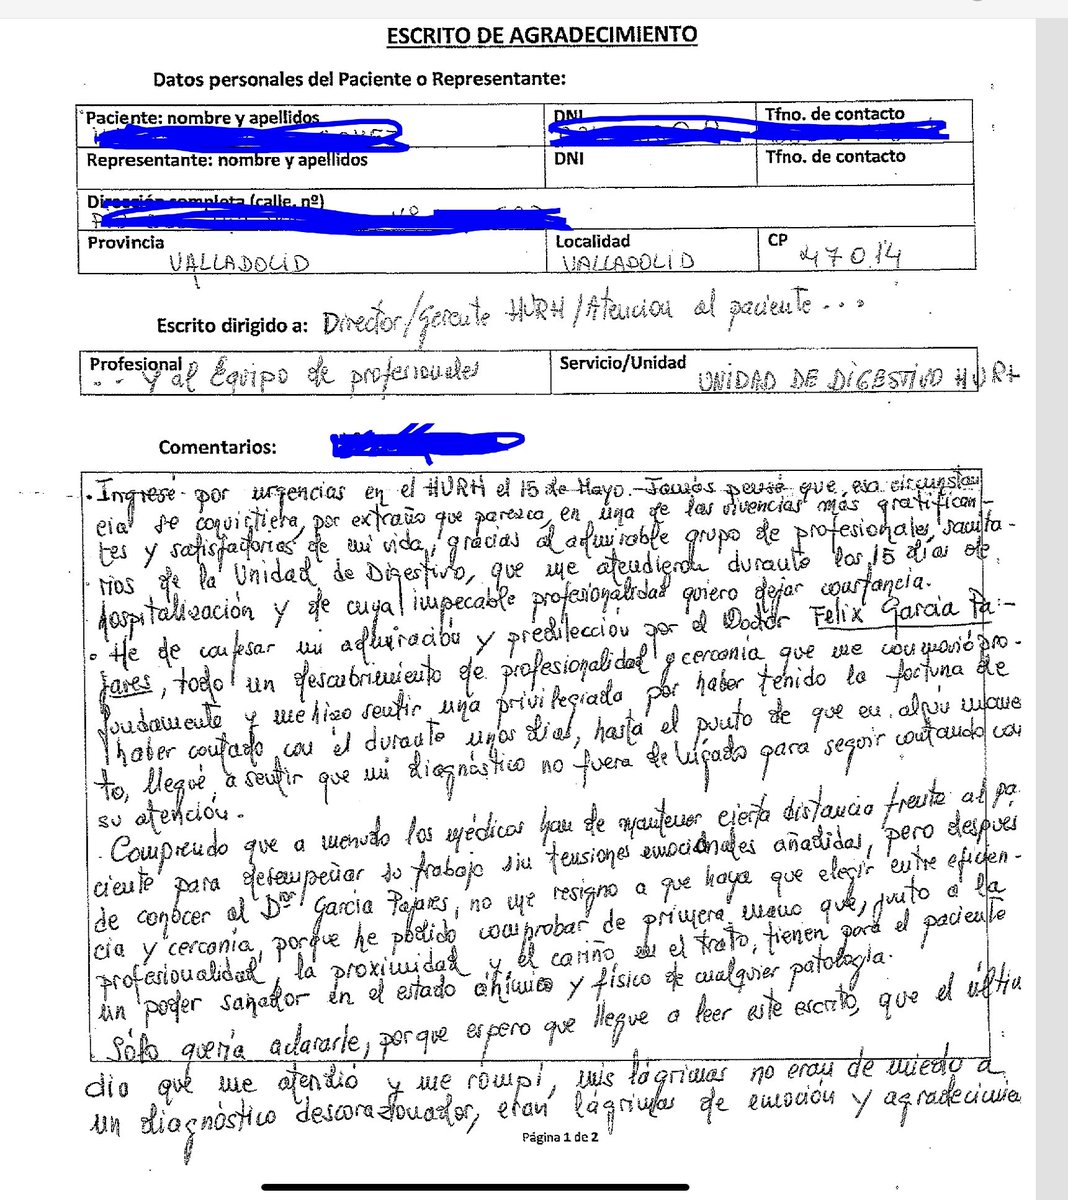 ESCRITO DE AGRADECIMIENTO
Datos personales del Paciente o Representante:
Paciente: nombre y apellidos
DNI
Tfno. de contacto
Representante: nombre y apellidos
DNI
Tfno. de contacto
Dirección completa (calle, nº)
Nº
Provincia
VALLADOLID
Localidad
VALLADOLID
CP
47014
Escrito dirigido a: Director/Gerente HURH/Atencion al paciente...
Profesional
... y al Equipo de profesionales
Servicio/Unidad
UNIDAD DE DIGESTIVO HURH
Comentarios:
. Ingresé por urgencias en el HURH el 15 de Mayo. Jamás pensé que esa circunstan
cia se convirtiera, por extraño que parezca, en una de las vivencias más gratifican-
tes y satisfactorias de mi vida, gracias al admirable grupo de profesionales sanita-
rios de la Unidad de Digestivo, que me atendieron durante los 15 días de
hospitalización y de cuya impecable profesionalidad quiero dejar constancia.
. He de confesar mi admiración y predilección por el Doctor Felix Garcia Pa-
jares, todo un descubrimiento de profesionalidad y cercanía que me conmovió pro-
fundamente y me hizo sentir una privilegiada por haber tenido la fortuna de
haber contado con él durante unos días, hasta el punto de que en algún momen
to, llegué a sentir que mi diagnóstico no fuera de hígado para seguir contando con
su atención.
. Comprendo que a menudo los médicos han de mantener cierta distancia frente al pa
ciente para desempeñar su trabajo sin tensiones emocionales añadidas, pero después
de conocer al Dr Garcia Pajares, no me resigno a que haya que elegir entre eficien-
cia y cercanía, porque he podido comprobar de primera mano que, junto a la
profesionalidad, la proximidad y el cariño en el trato, tienen para el paciente
un poder sanador en el estado anímico y físico de cualquier patología.
. Sólo quería aclararle, porque espero que llegue a leer este escrito, que el últim
día que me atendió y me rompí, mis lágrimas no eran de miedo a
un diagnóstico descorazonador, eran lágrimas de emoción y agradecimie
Página 1 de 2